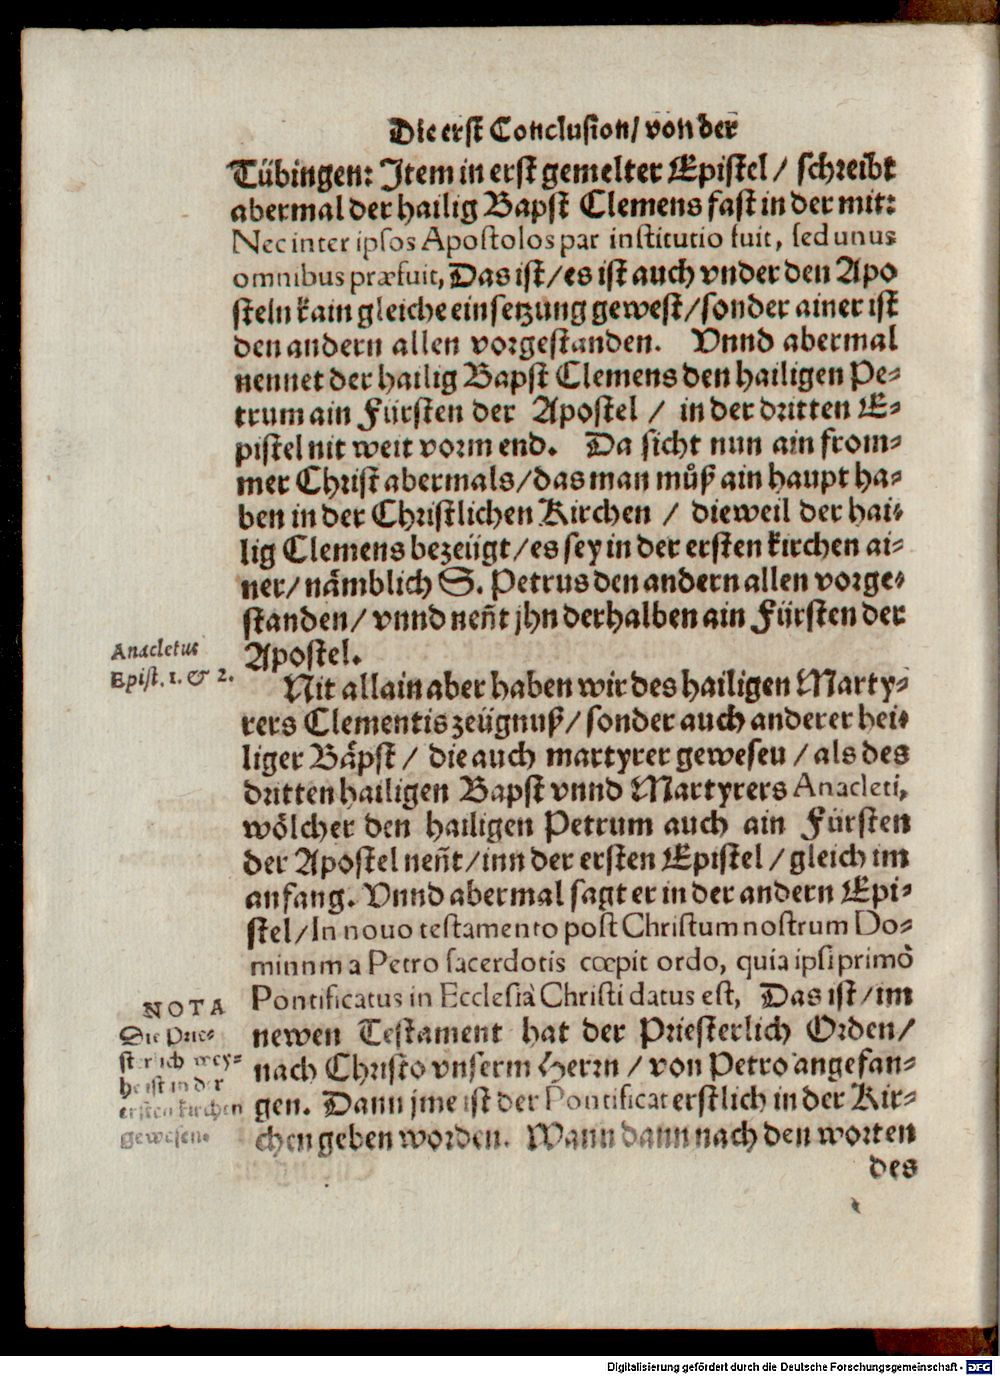 Die erst Conclusion/ von der
Tübingen: Item in erst gemelter Epistel / schreibt
abermal der hailig Bapst Clemens fast in der mit:
Nec inter ipsos Apostolos par institutio fuit, sed unus
omnibus præfuit, Das ist/ es ist auch vnder den Apo
steln kain gleiche einsetzung gewest/ sonder ainer ist
den andern allen vorgestanden. Vnnd abermal
nennet der hailig Bapst Clemens den hailigen Pe⸗
trum ain Fürsten der Apostel / in der dritten E⸗
pistel nit weit vorm end. Da sicht nun ain from⸗
mer Christ abermals/ das man můß ain haupt ha⸗
ben in der Christlichen Kirchen / dieweil der hai⸗
lig Clemens bezeügt/ es sey in der ersten kirchen ai⸗
ner/ nämblich S. Petrus den andern allen vorge⸗
standen/ vnnd neñt jhn derhalben ain Fürsten der
Apostel.
Anacletus
Epist. 1. & 2.
Nit allain aber haben wir des hailigen Marty⸗
rers Clementis zeügnuß/ sonder auch anderer hei⸗
liger Bäpst / die auch martyrer geweseu / als des
dritten hailigen Bapst vnnd Martyrers Anacleti,
wölcher den hailigen Petrum auch ain Fürsten
der Apostel neñt/ inn der ersten Epistel / gleich im
anfang. Vnnd abermal sagt er in der andern Epi⸗
stel/ In nouo testamento post Christum nostrum Do⸗
minnm a Petro sacerdotis cœpit ordo, quia ipsi primò
Pontificatus in Ecclesia Christi datus est, Das ist/ im
newen Testament hat der Priesterlich Orden/
nach Christo vnserm Herrn / von Petro angefan⸗
gen. Dann jme ist der Pontificat erstlich in der Kir⸗
chen geben worden. Wann dann nach den worten
des
NOTA
Die Prie⸗
sterlich wey⸗
he ist in der
ersten kirchen
gewesen.
Digitalisierung gefördert durch die Deutsche Forschungsgemeinschaft - DFG